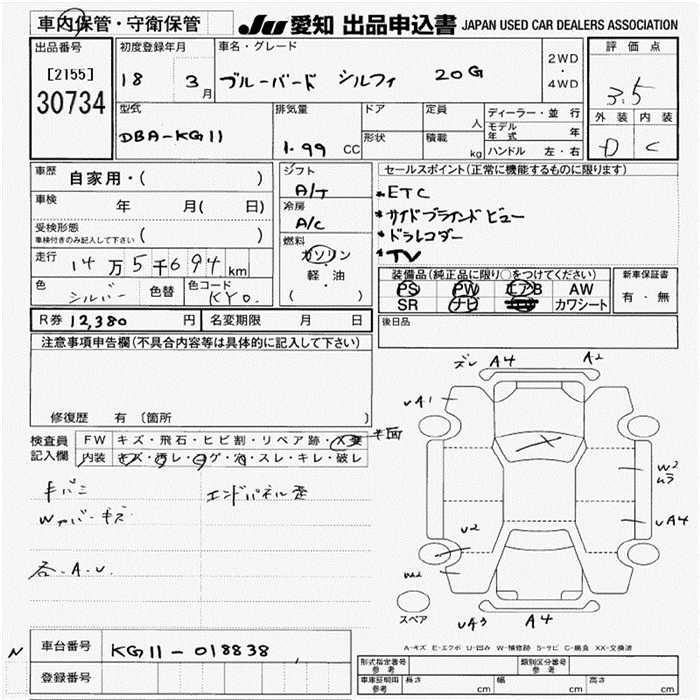 車内保管・守衛保管 JU 愛知 出品申込書 JAPAN USED CAR DEALERS ASSOCIATION
出品番号 初度登録年月 車名・グレード 評価点
[2155] 18 3月 ブルーバード シルフィ 20G 2WD・4WD 3.5
30734
型式 排気量 ドア 定員 ディーラー・並行 外装 内装
DBA-KG11 1.99 CC 形状 人 積載 kg モデル年式 年 D C
ハンドル 左・右
車歴 自家用・( ) シフト セールスポイント(正常に機能するものに限ります)
A/T
車検 年 月( 日) 冷房 *ETC
A/C *サイドブラインドビュー
受検形態 車検付きのみ記入して下さい ( ) *ドラレコダー
燃料 *TV
走行 14万5千694km ガソリン 装備品(純正品に限り○をつけてください) 新車保証書
軽・油 PS PW エアB AW 有・無
色 シルバー 色替 色コード KY0. ( ) SR ナビ カワシート
R券 12,380円 名変期限 月 日 後日品
注意事項申告欄(不具合内容等は具体的に記入して下さい)
ズレ A4 A2
uA1
修復歴 有 〔箇所 〕
検査員記入欄 FW キズ・飛石・ヒビ割・リペア跡・X要
内装 キズ・汚レ・コゲ・穴・スレ・キレ・破レ
W2 ムラ
エンドパネル歪
Wカバーキズ
uA4
U2
各.A.U.
W2
スペア uA3 A4
A-キズ E-エクボ U-凹み W-補修跡 S-サビ C-腐食 XX-交換済
N 車台番号 KG11-018838
形式指定番号 参考 類別区分番号 参考
登録番号 車庫証明用 参考 長さ cm 幅 cm 高さ cm